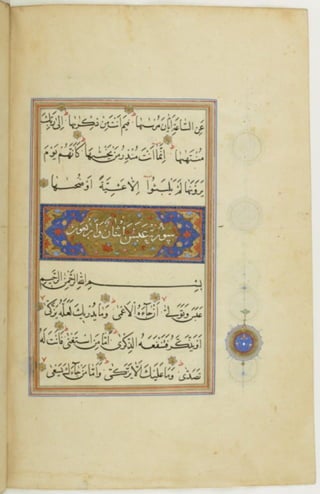 عَنِ السَّاعَةِ أَيَّانَ مُرْسٰيهَا فِيمَ أَنْتَ مِنْ ذِكْرٰيهَا إِلٰى رَبِّكَ
مُنْتَهٰيهَا إِنَّمَا أَنْتَ مُنْذِرُ مَنْ يَخْشٰيهَا كَأَنَّهُمْ يَوْمَ
يَرَوْنَهَا لَمْ يَلْبَثُوا إِلَّا عَشِيَّةً أَوْ ضُحٰيهَا
سورة عبس اثنان واربعون
بسم الله الرحمن الرحيم
عَبَسَ وَتَوَلّٰى أَنْ جَاءَهُ الْأَعْمٰى وَمَا يُدْرِيكَ لَعَلَّهُ يَزَّكّٰى
أَوْ يَذَّكَّرُ فَتَنْفَعَهُ الذِّكْرٰى أَمَّا مَنِ اسْتَغْنٰى فَأَنْتَ لَهُ
تَصَدّٰى وَمَا عَلَيْكَ أَلَّا يَزَّكّٰى وَأَمَّا مَنْ جَاءَكَ يَسْعٰى